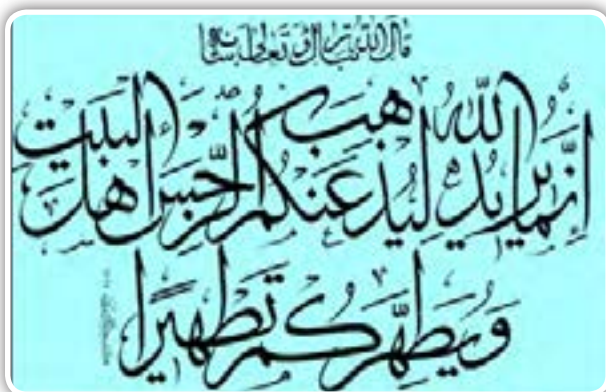 قال الله تبارك وتعالى
إنما يريد الله ليذهب عنكم الرجس أهل البيت
ويطهركم تطهيرا